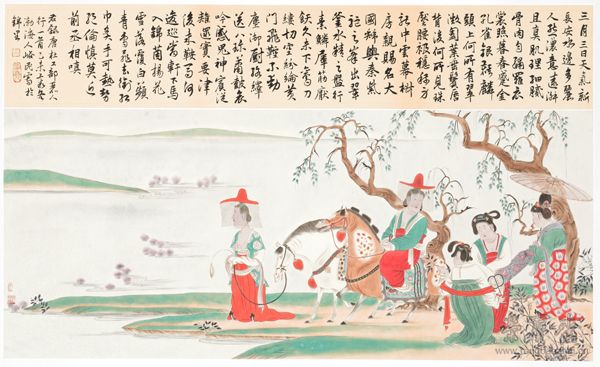 三月三日天氣新
長安水邊多麗
人態濃意遠淑
且真肌理細膩
骨肉勻繡羅衣
裳照暮春蹙金
孔雀銀麒麟
頭上何所有翠
微㔩葉垂鬢唇
背後何所見珠
壓腰衱穩稱身
就中雲幕椒
房親賜名大
國虢與秦紫
駝之峯出翠
釜水精之盤行
素鱗犀筯厭
飫久未下鸞刀
縷切空紛綸黃
門飛鞚不動
塵御廚絡繹
送八珍簫鼓哀
吟感鬼神賓從
雜遝實要津
後來鞍馬何
逡巡當軒下馬
入錦茵楊花
雪落覆白蘋
青鳥飛去銜紅
巾炙手可熱勢
絕倫慎莫近
前丞相嗔
右錄唐杜工部麗人
行